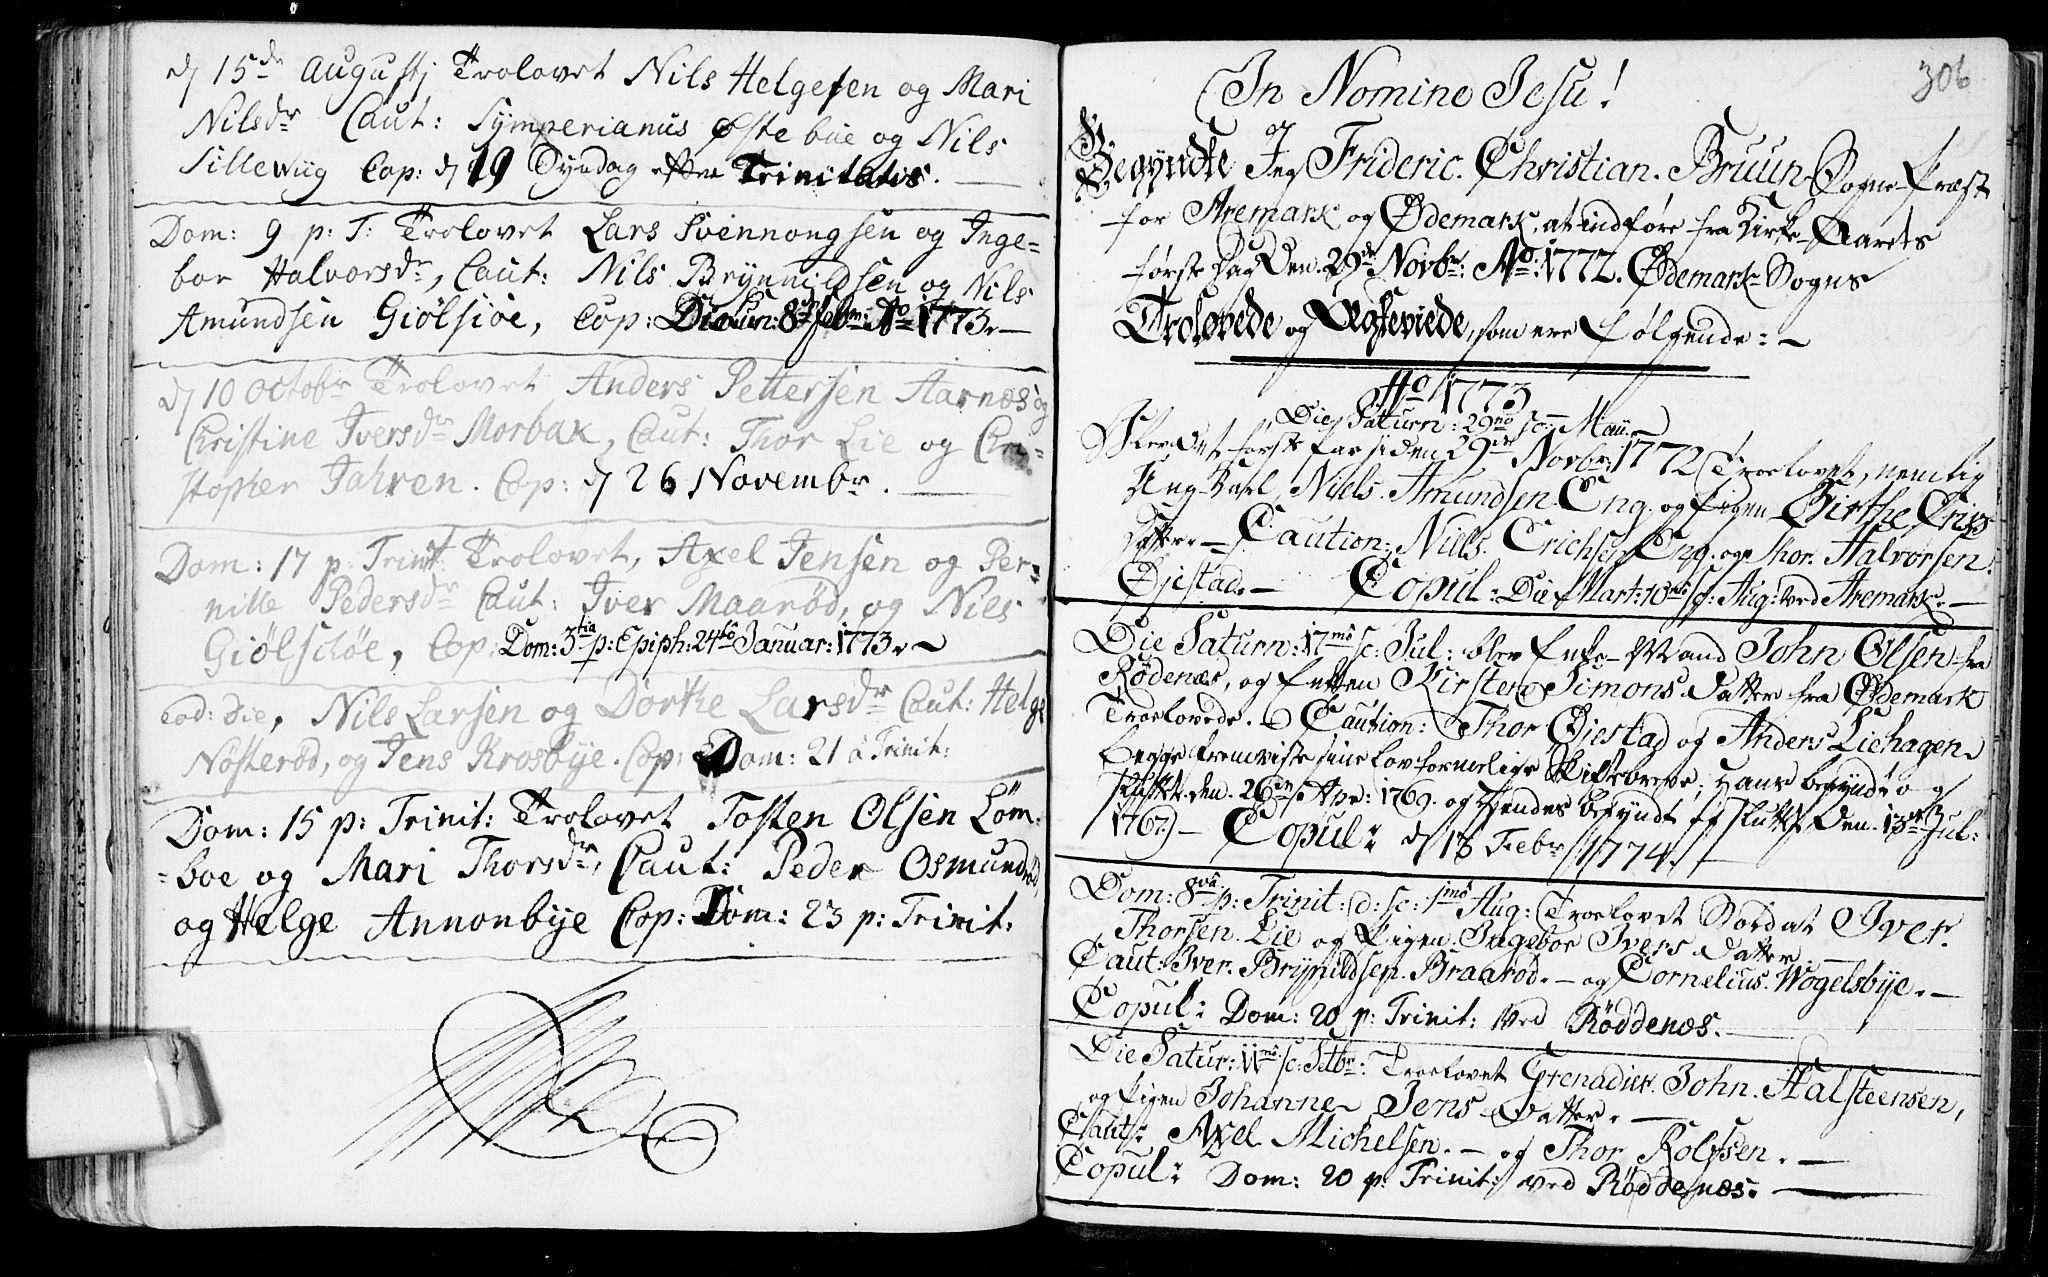 d 15de Augustj Trolovet Nils Helgesen og Mari
Nilsdr Caut: Symperianus Østebue og Nils
Sillewiig Cop: d 19 Syndag efter Trinitatis.
Dom: 9 p: T: Trolovet Lars Svennongsen og Inge=
bor Halvorsdr, Caut: Nils Brynnildsen og Nils
Amundsen Giølsiøe, Cop: 8 Febr: Ao 1773.
d 10 Octobr Trolovet Anders Pettersen Aarnæs og
Christine Iversdr Morbak, Caut: Thor Lie og Chri=
stopher Jahren. Cop: d 26 Novembr.
Dom: 17 p: Trinit: Trolovet, Axel Jensen og Per=
nille Pedersdr Caut: Iver Maarød, og Nils
Giølsdøe, Cop: Dom: 3tia p: Epiph: 24to Januar: 1773.
eod: die, Nils Larsen og Dorthe Larsdr Caut: Helge
Nøsterød, og Jens Krosbye. Cop: Dom: 21 a Trinit:
Dom: 15 p: Trinit: Trolovet Tosten Olsen Løm=
=boe og Mari Thorsdr, Caut: Peder Osmundrød
og Helge Annonbye Cop: Dom: 23 p: Trinit:
306
In Nomine Jesu!
Begyndte Jeg Frideric. Christian. Bruun Sogne-Præst
for Aremark og Ødemark, at indføre fra Kirke-Aarets
første Dag Den 29de Novbr: Ao: 1772. Ødemark-Sogns
Troelovede og Ægteviede, som ere følgende:
Ao 1773
Die Saturn: 29no Maii
Blev det første Par siden 29de Novbr: 1772 Troelovet, nemlig
Ung-Karl Niels. Amundsen Eng. og Pigen Birthe Erichs
Datter Caution: Niels. Erichsen Eng. og Thor. Halvorsen
Øjestad. Copul: Die Mart: 10mo sc: Aug: ved Aremark.
Die Saturn: 17mo sc: Jul: blev Enke-Mand John Olsen fra
Rødenæs, og Enken Kirsten Simons-Datter fra Ødemark
Troelovede. Caution: Thor Øjestad og Anders Liehagen
begge fremviste sine lovformelige Skiftebreve, Hans begyndt og
sluttet den 26de Apr: 1769. og Hendes begyndt og sluttet Den 13de Jul:
1767. Copul: d 18 Febr 1774.
Dom: 8va p: Trinit: d: sc: 1mo Aug: Troelovet Soldat Iver.
Thorsen. Lie og Pigen Ingebor Ivers Datter
Caut: Iver. Brynildsen. Braarød. og Cornelius. Wogelsbye.
Copul: Dom: 20 p: Trinit: ved Røddenæs.
Die Satur: 11mo sc: Septbr: Troelovet Grenadier. John. Halsteensen,
og Pigen Johanne Jens-Datter.
Caut: Axel Michelsen. og Thor Rolfsen.
Copul: Dom: 20 p: Trinit: ved Røddenæs.